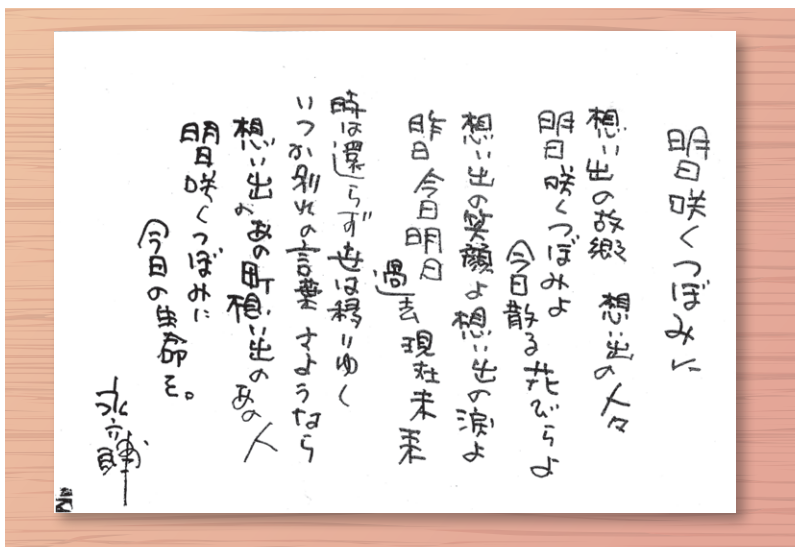 明日咲くつぼみに
想い出の故郷 想い出の人々
明日咲くつぼみよ
今日散る花びらよ
想い出の笑顔よ 想い出の涙よ
昨日 今日 明日
過去 現在 未来
時は還らず 世は移りゆく
いつか別れの言葉 さようなら
想い出のあの町 想い出のあの人
明日咲くつぼみに
今日の生命を。
永六輔